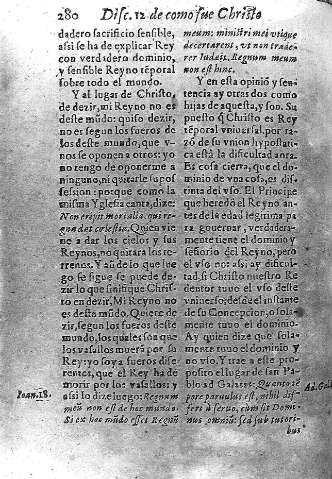 280 Disc. 12 de como fue Christo
dadero sacrificio sensible,
assi se ha de explicar Rey
con verdadero dominio,
y sensible Reyno tẽporal
sobre todo el mundo.
Y al lugar de Christo,
de dezir, mi Reyno no es
deste mũdo: quiso dezir,
no es segun los fueros de
los deste mundo, que v-
nos se oponen a otros: yo
no tengo de oponerme a
ninguno, ni quitarle su pos
session: porque como la
misma Yglesia canta, dize:
Non eripit mortalia, qui re-
gna dat cælestia. Quien vie
ne a dar los cielos y sus
Reynos, no quitarà los ter-
renos. Y añado lo que lue
go se sigue se puede de-
zir lo que sintio que Chris-
to en dezir, Mi Reyno no
es deste mũdo. Quiere de
zir, segun los fueros deste
mundo, los quales son que
los vasallos muerã por su
Rey: yo soy a fueros dife-
rentes, que el Rey ha de
morir por los vasallos: y
assi lo dize luego: Regnum
meũ non est de hoc mundo.
Si ex hoc mũdo esset Regnũ
Ioan. 18.
meum: ministri mei vtique
decertarent, vt non trade-
rer Iudæis. Regnum meum
non est hinc.
Y en esta opinió y sen-
tencia ay otras dos como
hijas de aquesta, y son. Su
puesto q̃ Christo es Rey
tẽporal vniuersal, por ra-
zõ de su vnion hypostati-
ca està la dificultad aora.
Es cosa cierta, que el do-
minio de vna cosa, es dis-
tinta del vso. El Principe
que heredò el Reyno an-
tes de la edad legitima pa
ra gouernar, verdadera-
mente tiene el dominio y
señorio del Reyno, pero
el vso no: assi ay dificul-
tad, si Christo nuestro Re
dentor tuuo el vso deste
vniuerso, desde el instante
de su Concepcion, o sola-
mente tuuo el dominio.
Ay quien dize que sola-
mente tuuo el dominio y
no vso. Y trae a este pro-
posito el lugar de san Pa-
blo ad Galatas: Quanto tẽ
pore paruulus est, nihil dif-
fert à seruo, cum sit Domi-
nus omniũ: sed sub tutori-
bus